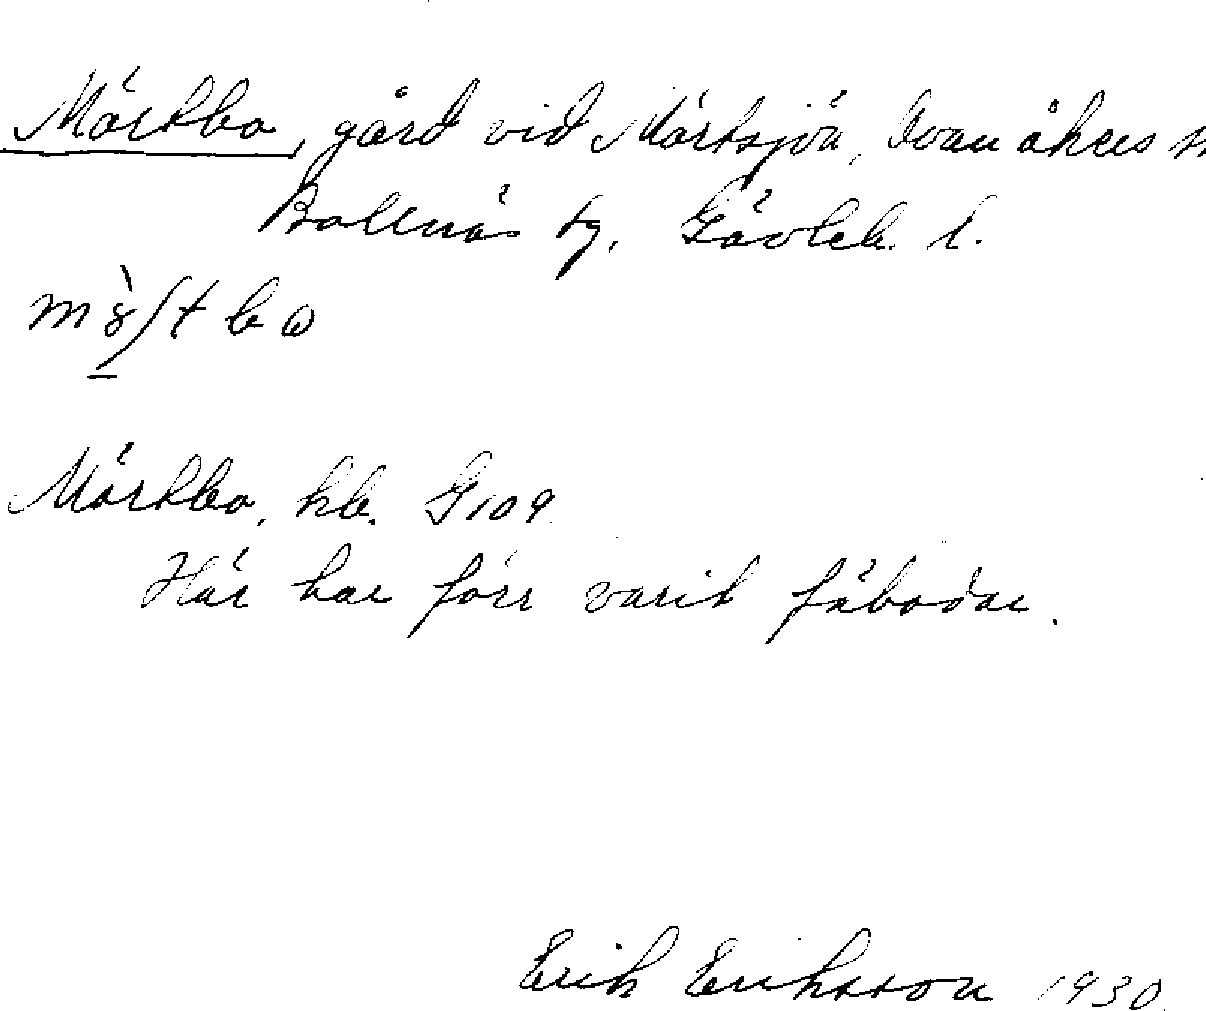 Mörtbo, gård vid Mörtsjön, Ovanåkers
Bollnäs tg, Gävleb. l.
Mörtbo, kb. G109.
Här har förr varit fäbodar.
Erik Eriksson 1930.